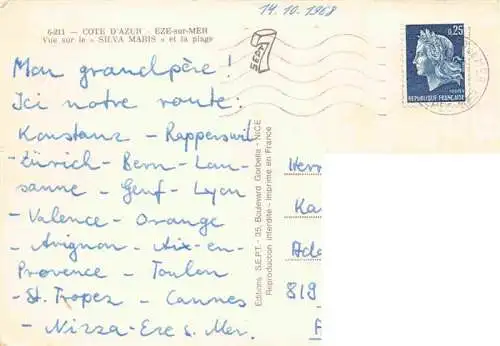 14.10.1968
6-211 - COTE D'AZUR - EZE-sur-MER
Vue sur le « SILVA MARIS » et la plage
0,25
REPUBLIQUE FRANÇAISE
Mon grandpère!
Ici notre route:
Konstanz - Rapperswil
- Zürich - Bern - Lau-
sanne - Genf - Lyon
- Valence - Orange
- Avignon - Aix-en-
Provence - Toulon
- St. Tropez - Cannes
- Nizza - Eze s. Mer.
Editions S.E.P.T. - 35, Boulevard Gorbella - NICE
Reproduction interdite - Imprimé en France
Herr
Ka
Ado
819